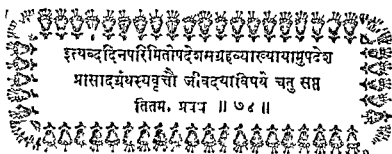 इत्यब्ददिनपरिमितोपदेशसग्रहव्याख्यायामुपदेश
प्रासादग्रंथस्यवृत्तौ जीवदयाविषये चतु सप्त
तितम. प्रबंध ॥ ७४ ॥